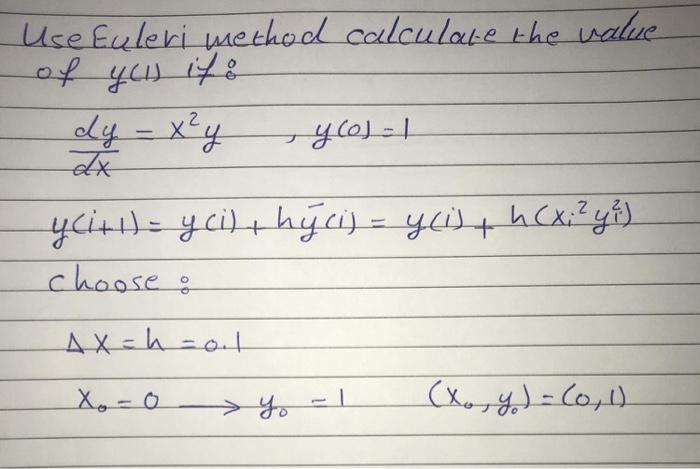 Use Euleri method calculate the value
of y(1) if :
dy/dx = x²y , y(0) = 1
y(i+1) = y(i) + hȳ(i) = y(i) + h(xᵢ² yᵢ²)
choose :
Δx = h = 0.1
x₀ = 0 → y₀ = 1 (x₀, y₀) = (0, 1)